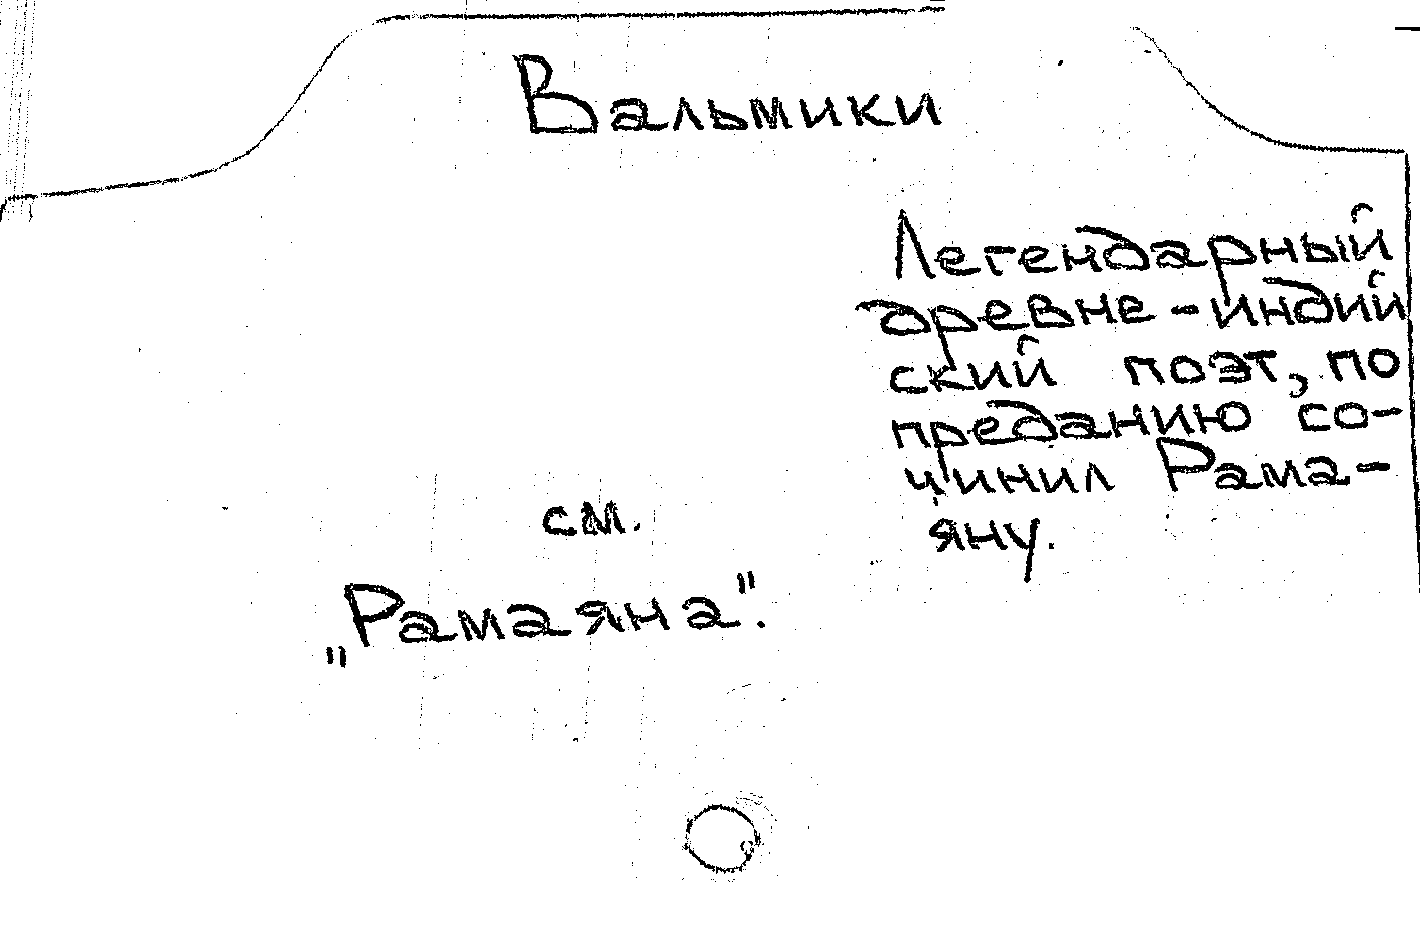 Вальмики
Легендарный
древне-индий
ский поэт, по
преданию со-
чинил Рама-
яну.
см.
„Рамаяна".